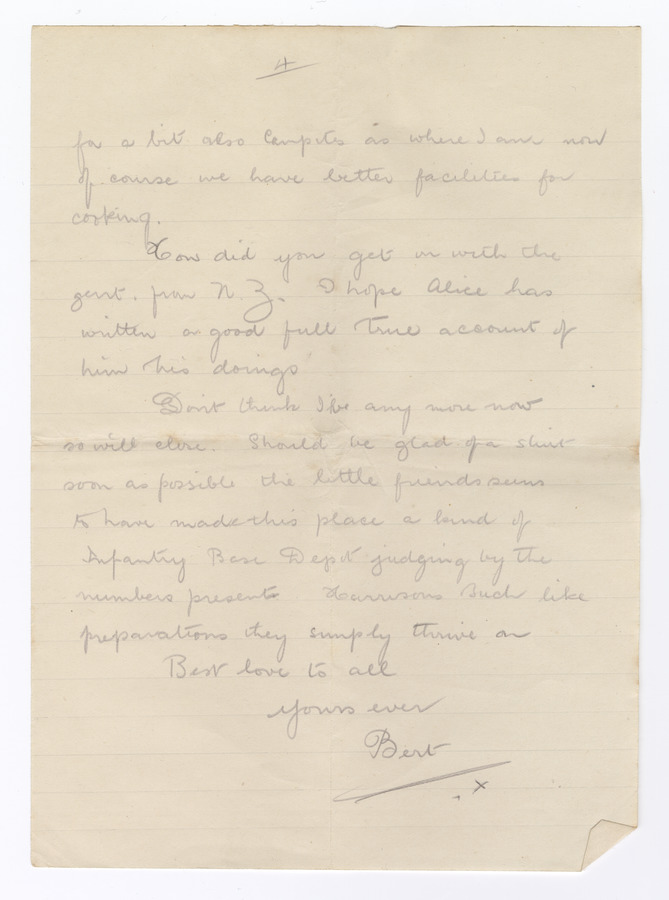 4
for a bit also Campits as where I am now
of course we have better facilities for
cooking.
How did you get on with the
gent. from N. Z. I hope Alice has
written a good full true account of
him his doings
Don't think I've any more now
so will close. Should be glad of a shirt
soon as possible the little friends seem
to have made this place a kind of
Infantry Base Depot judging by the
numbers present. Harrisons such like
preparations they simply thrive on
Best love to all
Yours ever
Bert
x